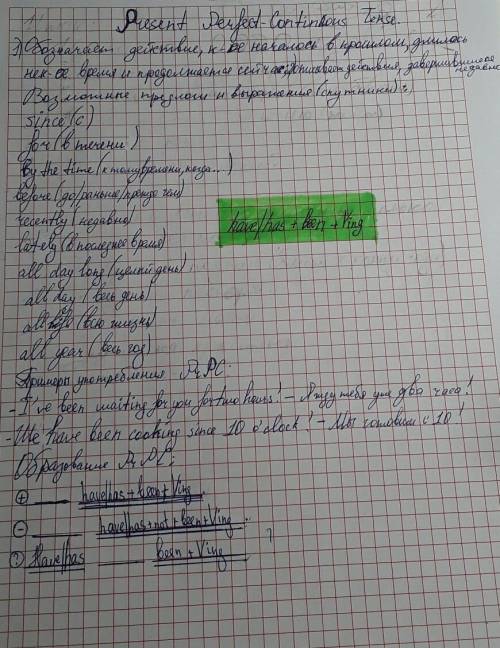 Present Perfect-Continuous Tense.
1) Обозначает действие, к-ое началось в прошлом, длилось
нек-ое время и продолжается сейчас, описывает действия, завершившиеся
недавно
Возможные предлоги и выражения (спутники):
since (с)
for (в течени)
by the time (к тому времени, когда...)
before (до/раньше/прежде чем)
recently (недавно)
have/has + been + Ving
lately (в последнее время)
all day long (целый день)
all day (весь день)
all life (всю жизнь)
all year (весь год)
Примеры употребления Pr.P.C:
- I've been waiting for you for two hours! - Я жду тебя уже два часа!
- We have been cooking since 10 o'clock! - Мы готовим с 10!
Образование Pr.P.C:
+ ____ have/has + been + Ving.
- ____ have/has + not + been + Ving.
? Have/has ____ been + Ving ?